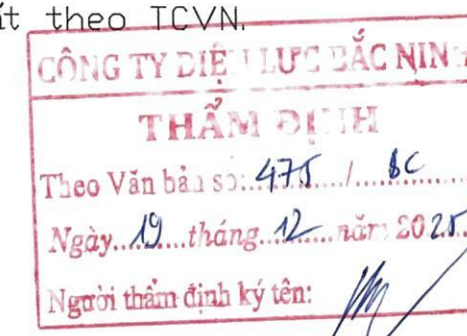 ất theo TCVN.
CÔNG TY ĐIỆN LỰC BẮC NINH
THẨM ĐỊNH
Theo Văn bản số: 475 / BC
Ngày 19 tháng 12 năm 2025
Người thẩm định ký tên: